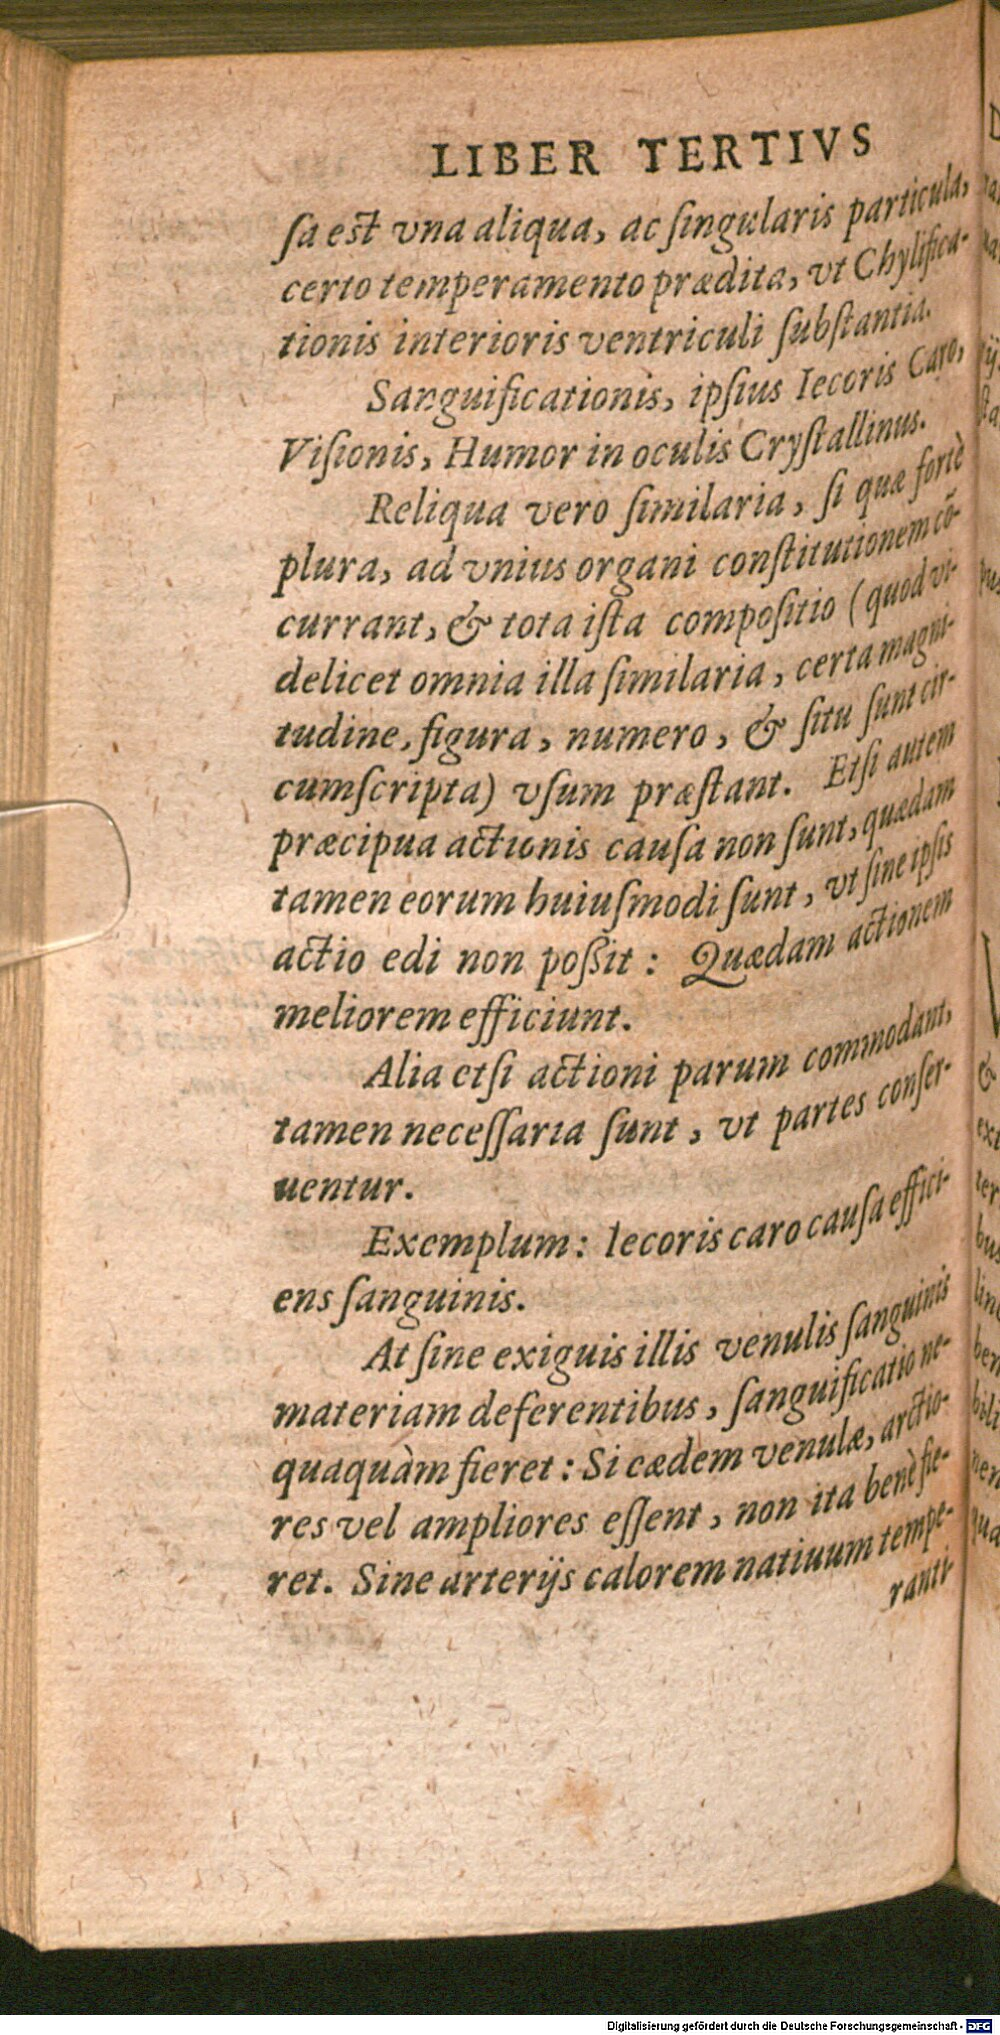 LIBER TERTIVS
ſa est vna aliqua, ac ſingularis particula,
certo temperamento prædita, vt Chylifica-
tionis interioris ventriculi ſubſtantia.
Sanguificationis, ipſius Iecoris Caro,
Viſionis, Humor in oculis Cryſtallinus.
Reliqua vero ſimilaria, ſi quæ fortè
plura, ad vnius organi conſtitutionem cō-
currant, & tota iſta compoſitio (quod vi-
delicet omnia illa ſimilaria, certa magni-
tudine, figura, numero, & ſitu ſunt cir-
cumſcripta) vſum præſtant. Etſi autem
præcipua actionis cauſa non ſunt, quædam
tamen eorum huiuſmodi ſunt, vt ſine ipſis
actio edi non poßit: Quædam actionem
meliorem efficiunt.
Alia etſi actioni parum commodant,
tamen neceſſaria ſunt, vt partes conſer-
uentur.
Exemplum: Iecoris caro cauſa effici-
ens ſanguinis.
At ſine exiguis illis venulis ſanguinis
materiam deferentibus, ſanguificatio ne-
quaquàm fieret: Si cædem venulæ, arctio-
res vel ampliores eſſent, non ita benè fie-
ret. Sine arterijs calorem natiuum tempe-
ranti-
Digitalisierung gefördert durch die Deutsche Forschungsgemeinschaft - DFG